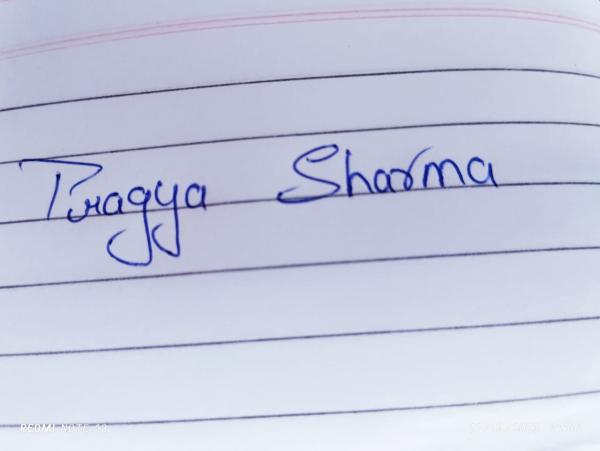 Pragya Sharma
REDMI NOTE